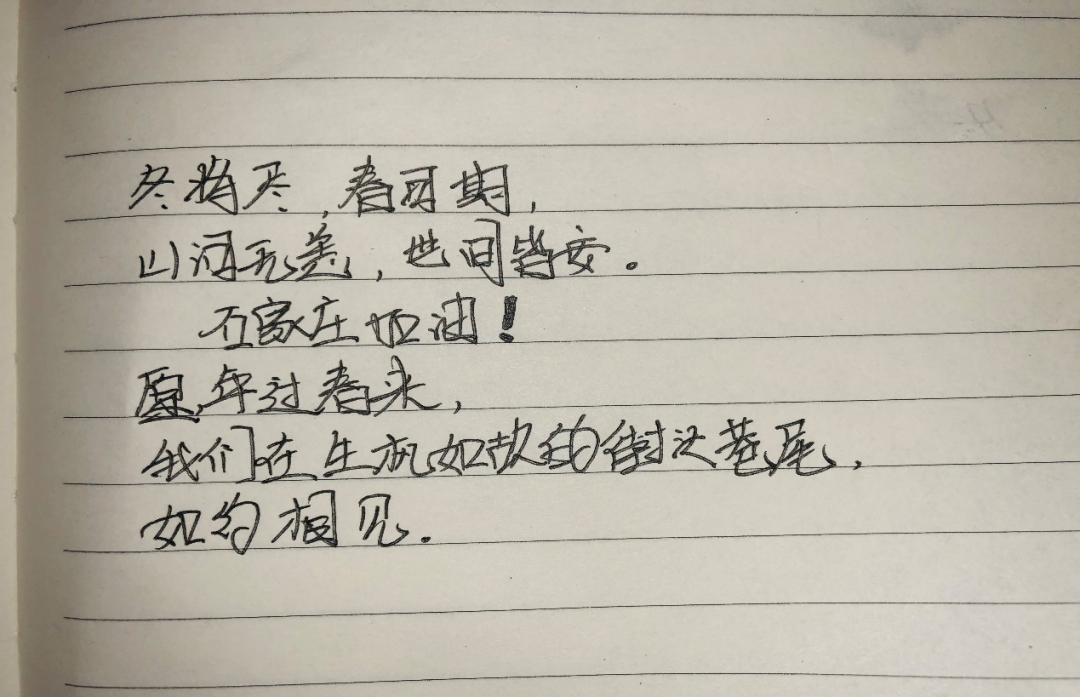 冬将尽，春可期，
山河无恙，世间皆安。
石家庄加油！
愿年过春来，
我们在生机如故的街头巷尾，
如约相见.